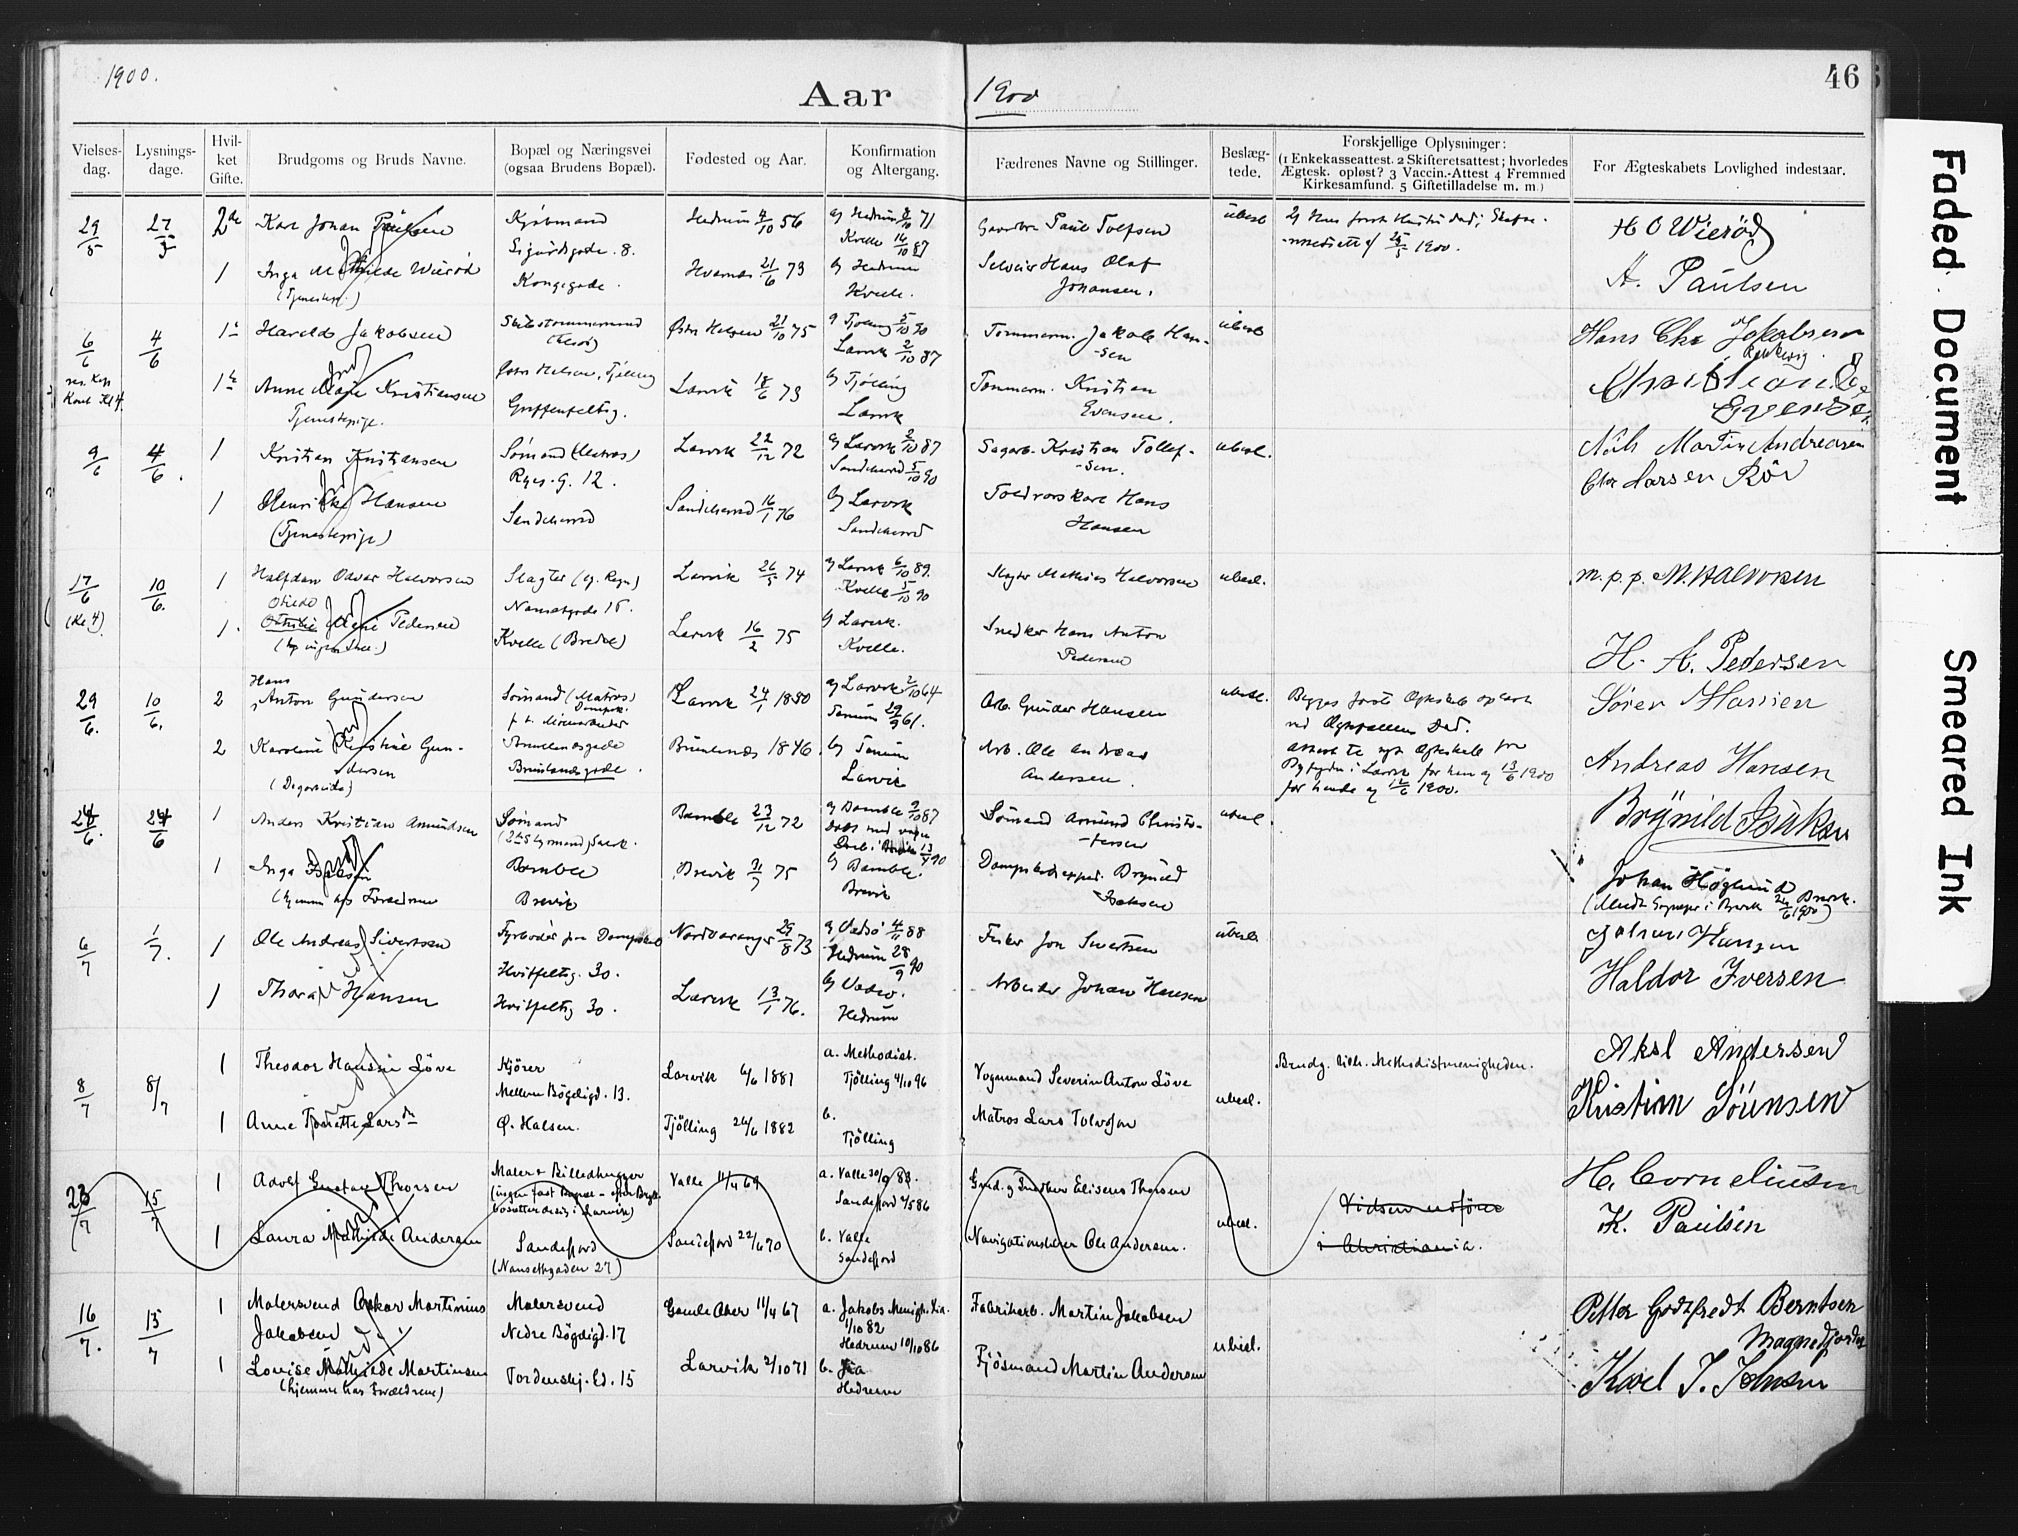 1900.
Aar 1900
46
Vielses-dag.
Lysnings-dage.
Hvil-ket Gifte.
Brudgoms og Bruds Navne.
Bopæl og Næringsvei (ogsaa Brudens Bopæl).
Fødested og Aar.
Konfirmation og Altergang.
Fædrenes Navne og Stillinger.
Beslæg-tede.
Forskjellige Oplysninger:
(1 Enkekasseattest. 2 Skifteretsattest; hvorledes
Ægtesk. opløst? 3 Vaccin.-Attest 4 Fremmed
Kirkesamfund. 5 Giftetilladelse m. m.)
For Ægteskabets Lovlighed indestaar.
29/5 27/5 2de Karl Johan Paulsen Kjøbmand Hedrum 4/10 56 Hedrum 8/10 71 Gaardbr. Paul Tolfsen ubesl. H O Wierød
Sigurdsgade. 8. Kvelle 16/10 87 25/5 1900.
1 Inga Mathilde Wierød Kongegade. Hvarnes 21/6 73 b) Hedrum Selveier Hans Olaf A. Paulsen
(Tjenestepi.) Kvelle. Johansen.
6/6 4/6 1ste Harald Jakobsen Skibstømmermand Østre Halsen 21/10 75 Tjølling 5/10 90 Tømmerm. Jakob Han- ubesl. Hans Chr Jakobsen
Larvik 2/10 87 -sen
1ste Anne Marie Kristiansen Østre Halsen, Tjølling Larvik 18/6 73 b) Tjølling Tømmerm. Kristian Christian
Tjenestepige. Griffenfeltsg. Larvik Evensen. Evensen
9/6 4/6. 1 Kristian Kristiansen Sømand (Matros) Larvik 22/12 72 a) Larvik 2/10 87 Sagarb. Kristian Tollef- ubesl. Nils Martin Andreasen
Ryes. G. 12. Sandeherred 5/10 90 -sen. Chr Larsen Rör
1 Henrikke Hansen Sandeherred Sandeherred 16/1 76 b) Larvik Toldrorskarl Hans
(Tjenestepige) Sandeherred Hansen
17/6 10/6. 1 Halfdan Odvar Halvorsen Slagter (eg. Regn.) Larvik 26/5 74 a) Larvik 6/10 89. Slagter Mathias Halvorsen ubesl. m.p.p. M. Halvorsen
(Kl 4). Nansetgade 18. Kvelle 5/10 90
1. Othilie Marie Pedersen Kvelle (Bredal) Larvik 16/2 75 b) Larvik. Snedker Hans Anton H. A. Pedersen
Kvelle. Pedersen
29/6. 10/6. 2 Hans Anton Gundersen Sømand (Matros) Larvik 24/1 1850 a) Larvik 2/10 64 Arb. Gunder Hansen ubesl. Begges første Ægteskab opløst Søren Hansen
Tanum 29/9 61. ved Ægtefællens Død.
2 Karoline Kristine Gun- Brunlanesgade. Brunlanæs 1846. b) Tanum Arb. Ole Andreas Andreas Hansen
dersen Larvik Andersen. Bygfogden i Larvik for ham af 13/6 1900
(Dagarbeide) for hende af 12/6 1900.
24/6. 24/6 1 Anders Kristian Amundsen Sømand Bamble 23/12 72 a) Bamble 2/10 87 Sømand Amund Christo- ubesl. Brynild Isaksen
fersen
1 Inga Isaksen Bamble Brevik 75 b) Bamble. Dampskibsexped. Brynild Johan Höglund
(hjemme hos Forældrene Brevik Brevik Isaksen Brevik.
6/7 1/7. 1 Ole Andreas Sivertsen Fyrbøder paa Dampskib Nordvaranger 25/8 73 a) Vadsø 4/11 88 Fisker Jon Sivertsen ubesl. Johan Hansen
Hvitfeltsg. 30. Hedrum 28/9 90
1 Thora Hansen Hvitfeltsg 30. Larvik 13/1 76. b) Vadsø. Arbeider Johan Hansen Haldor Iversen
Hedrum
8/7 8/7 1 Theodor Hansen Löve Kjörer Larvik 6/6 1881 a. Methodist. Vognmand Severin Anton Löve Brudg. tilh. Methodistmenigheden. Aksl Andersen
Mellem Bögeligd. 13. Tjölling 4/10 96
1 Anne Tjorette Larsdn Ö. Halsen. Tjölling 26/6 1882 b. Matros Lars Tolvsen ubesl. Kristian Sörensen
Tjölling
23/7 15/7 1 Adolf Gustav Thorsen Maler & Billedhugger Valle 11/4 69 a. Valle 30/9 83. Gaard. g. Snedker Elisens Thorsen H. Corneliusen
(ingen fast bopæl – efter Bryll. bosætter de sig i Larvik) Sandefjord 4/5 86 Vidsen udføre
1 Laura Mathilde Andersen Sandefjord Sandefjord 22/6 70 b. Valle Navigationslærer Ole Andersen. ubesl. i Christiania. K. Paulsen
(Nansetgaden 27) Sandefjord
16/7. 15/7 1 Malersvend Oskar Martinius Malersvend Gamle Aker 11/4 67 a. Jakobs Menigh. Kra. Fabrikarb. Martin Jakobsen Petter Godtfredt Berntsen
Jakobsen Nedre Bögeligd. 17 1/10 82 ubesl.
Hedrum 10/10 86
1 Lovise Mathilde Martinsen Tordenskj. Gd. 15 Larvik 2/10 71 b. Kra Fjösmand Martin Andersen Karl J. Johnsen
(hjemme hos Forældrene) Hedrum
Faded Document
Smeared Ink